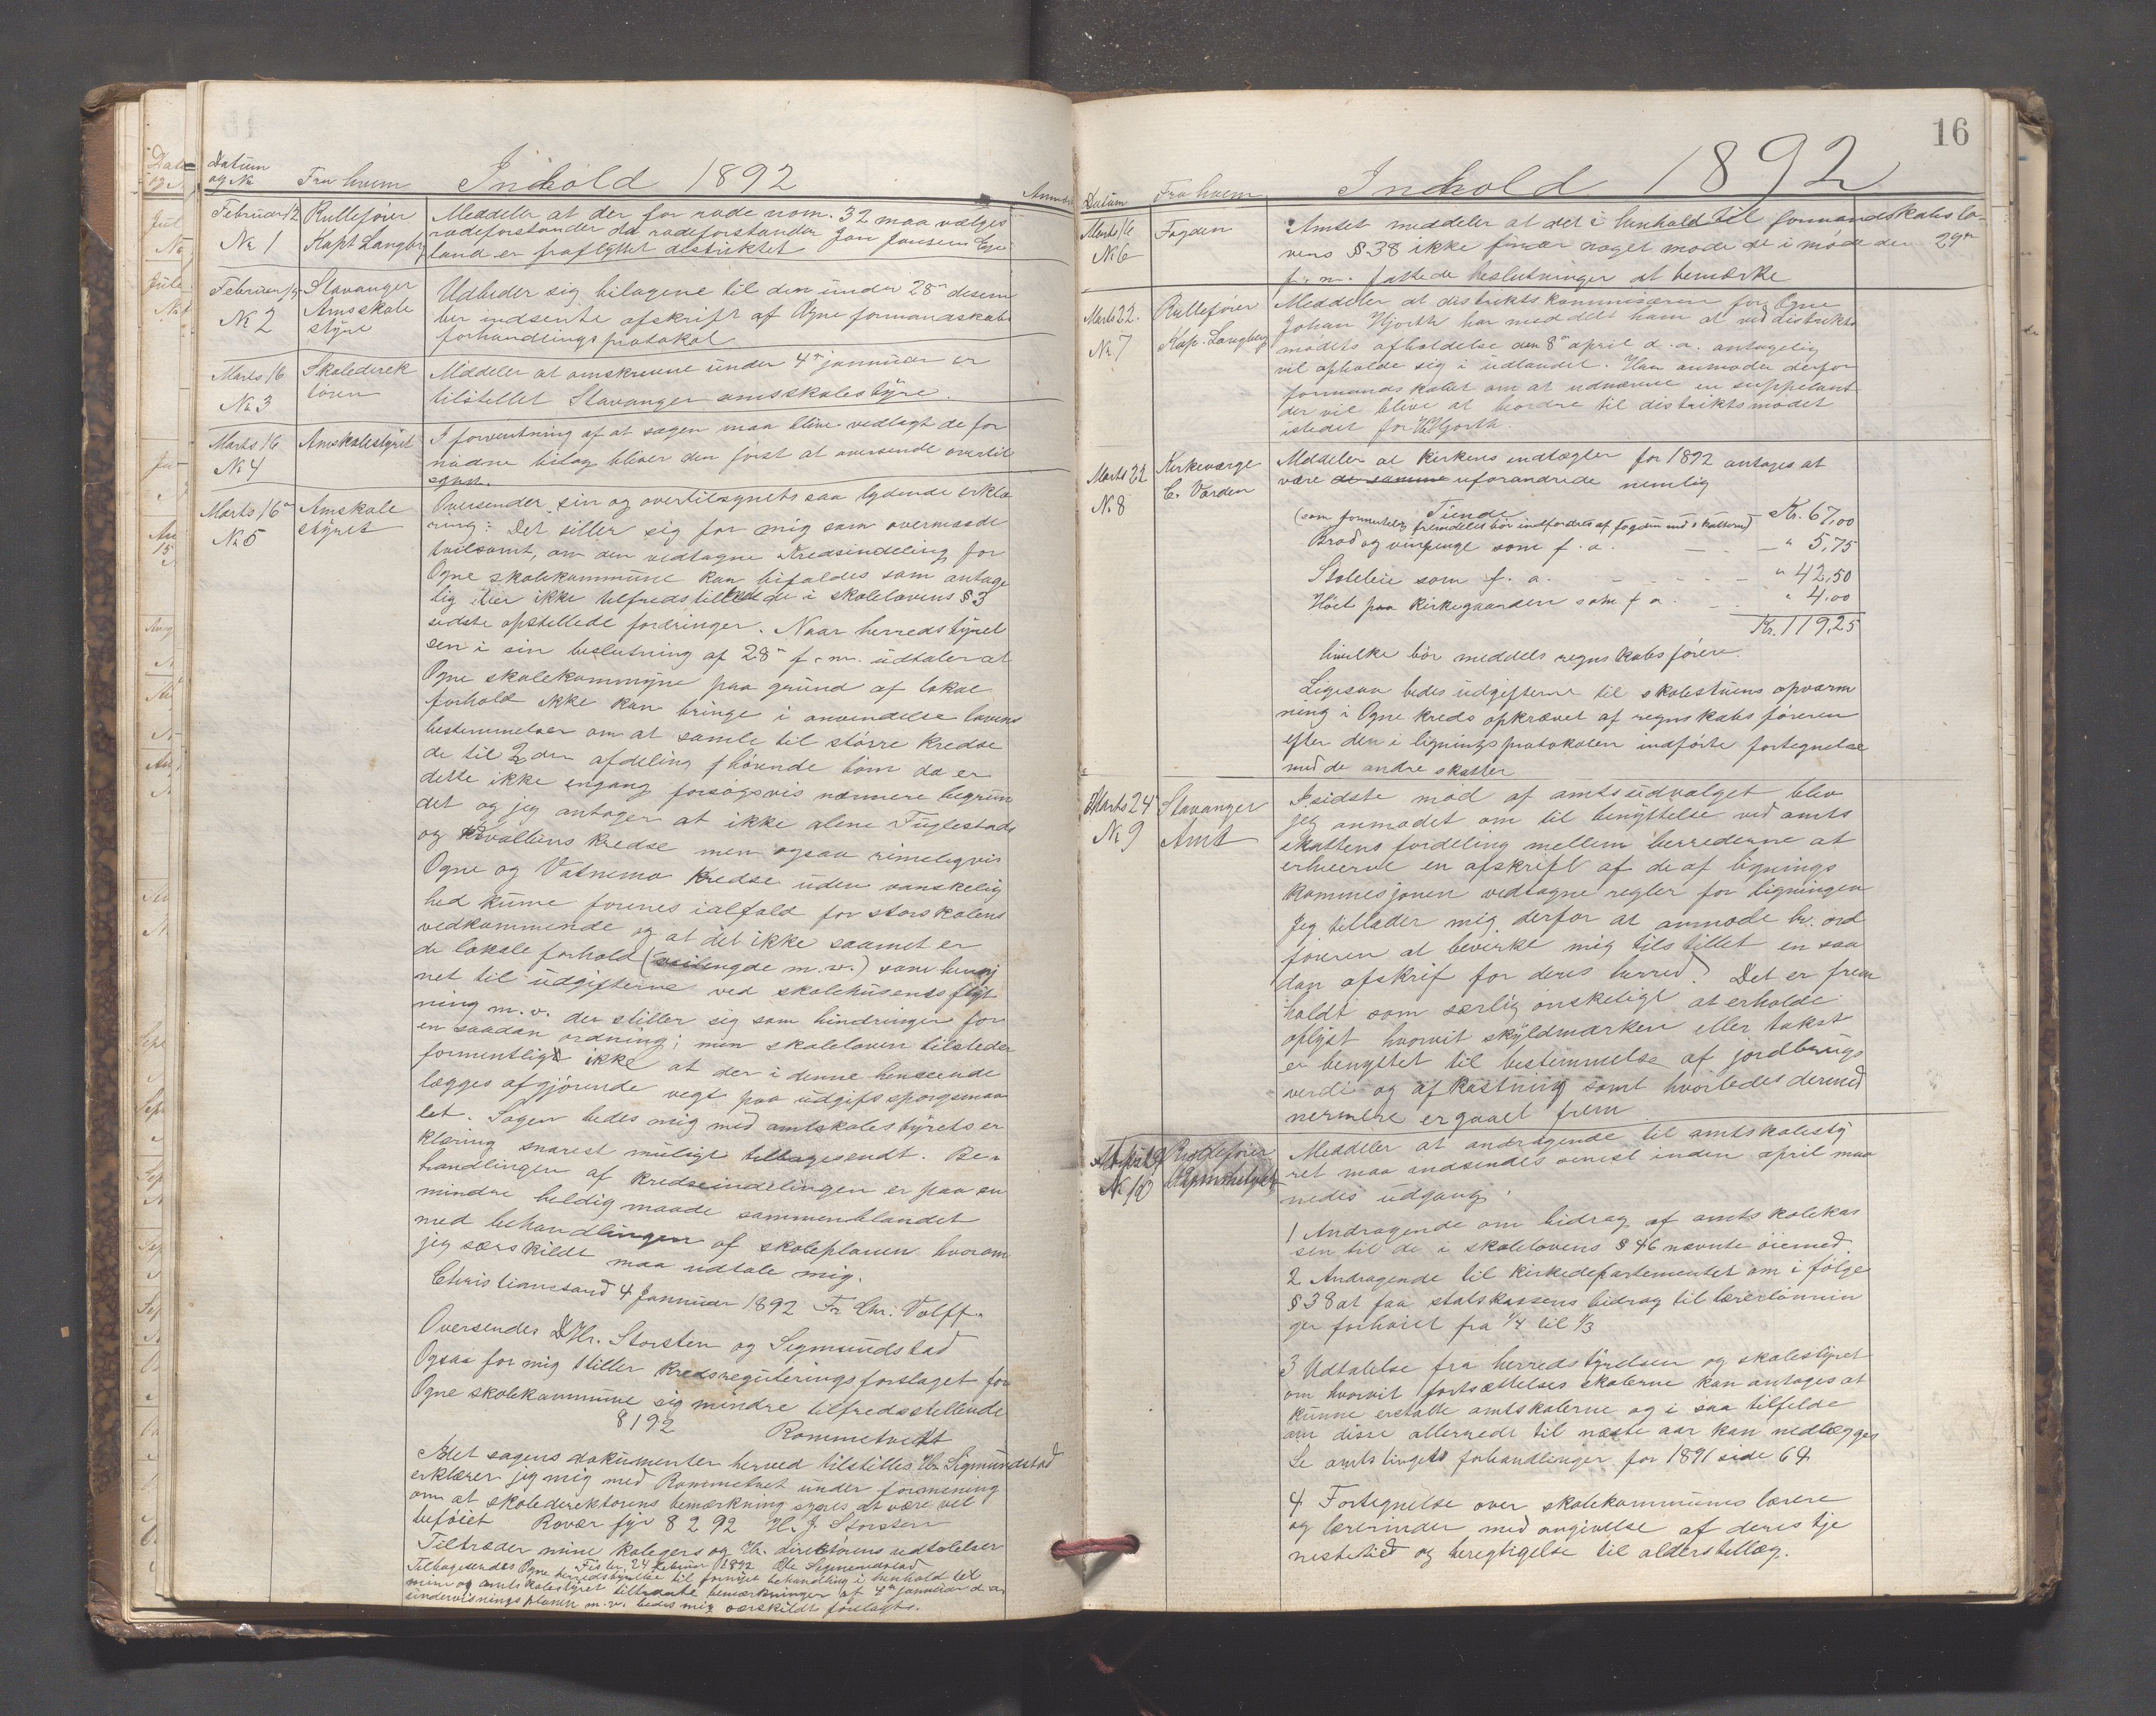 Datum
og No
Fra hvem
Indhold 1892
Februar 12
No 1
Rullefører
Kapt Langberg
Meddeler at der for rode nom. 32 maa vælges
rodeforstander da rodeforstander Jan Jansen
land er fraflyttet distriktet
Februar
No 2
Stavanger
Amsskole
styre
Udbeder sig bilagene til den under 28n desem
ber indsente afskrift af Ogne formandskabs
forhandlingsprotokol
Marts 16
No 3
Skoledirek
tøren
Meddeler at omskrevne under 4n januar er
tilstillet Stavanger amsskolestyre.
Marts 16
No 4
Amskolestyret
I forventning af at sagen maa blive vedlagt de for
nødne bilag bliver den først at oversende overtil
synet.
Marts 16n
No 5
Amskole
styret
Oversender sin og overtilsynets saa lydende erklæ
ring: Det stiller sig for mig som overmaade
tvilsomt, om den vedtagne Kredsindeling for
Ogne skolekommune kan bifaldes som antage
lig eller ikke tilfredstillende de i skolelovens § 3
sidste opstillede fordringer. Naar herredstyrel
sen i sin beslutning af 28n f. m. udtaler at
Ogne skolekommune paa grund af lokal
forhold ikke kan bringe i anvendelse lovens
bestemmelser om at samle til større Kredse
de til 2den afdeling hørende børn da er
dette ikke engang forsøgsvis nærmere begrun
det og jeg antager at ikke alene Fuglestads
og Kvalbens Kredse men ogsaa rimeligvis
Ogne og Vatnemo Kredse uden vanskelig
hed kunne forenes ialfald for storskolens
vedkommende og at det ikke saamet er
de lokale forhold (veilengde m. v.) som hensy
net til udgifterne ved skolehusents flyt
ning m. v. der stiller sig som hindringer for
en saadan ordning; men skoleloven tilsteder
formentligt ikke at der i denne henseende
lægges afgjørende vegt paa udgifsspørgsmaa
let. Sagen bedes mig med amtskolestyrets er
klæring snarest muligt tilbagesendt. Be-
handlingen af Kredseindelingen er paa en
mindre heldig maade sammenblandet
med behandlingen af skoleplanen hvorom
jeg særskildt maa udtale mig.
Christiansand 4 Januar 1892 Fr Chr. Volff.
Oversendes DHr. Storsten og Sigmundstad
Ogsaa for mig stiller Kredsreguleringsforslaget for
Ogne skolekommune sig mindre tilfredsstellende
8192 Rommetvedt
Idet sagens dokumenter herved tilstilles Hr. Sigmundstad
erklærer jeg mig med Rommetvet under formening
om at skoledirektørens bemærkning synes at være vel
beføiet Rovær fyr 8 2 92 H. J. Storsten
Tiltræder mine kolegers og Hr. direktørens udtalelser
24 februar 1892 Ole Sigmundstad
Tilbagesendes Ogne herredstyrelse til fornyet behandling i henhold til
mine og amtskolestyret tiltraate bemærkninger af 4n januar d. a.
undervisningsplanen m. v. bedes mig særskildt forelagts.
16
Datum
Fra hvem
Indhold 1892
Marts 16
No 6
Fogden
Amtet meddeler at det i henhold til formandskabslo-
vens § 38 ikke finder noget mode de i møde den 29n
f. m. fattede beslutninger at bemærke
Marts 22.
No 7
Rullefører
Kap. Langberg
Meddeler at distriktskommisæren for Ogne
Johan Hjorth har meddelt ham at ved distrikts
mødets afholdelse den 8n april d. a. antagelig
vil opholde sig i udlandet. Han anmoder derfor
formandskabet om at udnævne en suppelant
der vil blive at beordre til distriktsmødet
istedet for Hjorth.
Marts 22
No 8
Kirkeværge
C. Varden
Meddeler at Kirkens indtægter for 1892 antages at
være de samme uforandrede nemlig
Tiende Kr. 67,00
(som formentlig fremdeles bør indfordres af fogden med skatterne)
Brød og vinpenge som f. a. " 5,75
Stolleie som f. a. " 42,50
Høiet paa kirkegaarden som f a. " 4,00
Kr. 119,25
hvilke bør meddels regnskabsføren.
Ligesaa bedes udgifterne til skolestuens opvarm
ning i Ogne kreds opkrævet af regnskabsføreren
efter den i ligningsprotokolen indførte fortegnelse
med de andre skatter
Marts 24
No 9
Stavanger
Amt
I sidste mød af amtsudvalget blev
jeg anmodet om til benyttelse ved amts
skattens fordeling mellem herrederne at
erhverve en afskrift af de af lignings
kommisjonen vedtagne regler for ligningen
Jeg tillader mig derfor at anmode hr. ord
føreren at bevirke mig tilstillet en saa
dan afskrif for deres herred. Det er frem
holdt som særlig ønskeligt at erholde
oplyst hvorvit skyldmarken eller takst
er benyttet til bestemmelse af jordbrugs
verdi og afkastning samt hvorledes dermed
nermere er gaaet frem
April 9
No 10
Meddeler at andragende til amtskolesty
ret maa indsendes senest inden april maa
neds udgang.
1 Andragende om bidrag af amtskolekas
sen til de i skolelovens § 46 nævnte øiemed
2 Andragende til Kirkedepartementet om i følge
§ 38 at faa statskassens bidrag til lærerlønnin
ger forhøiet fra 1/4 til 1/3
3 Udtalelse fra herredstyrelsen og skolestyret
om hvorvit fortsættelsesskolerne kan antages at
kunne erstatte amtskolerne og i saa tilfelde
om disse allerrede til næste aar kan nedlægges
Se amtstingets forhandlinger for 1891 side 64
4 Fortegnelse over skolekommunens lærere
og lærerinder med angivelse af deres tje
nestetied og beregtigelse til alderstillæg.